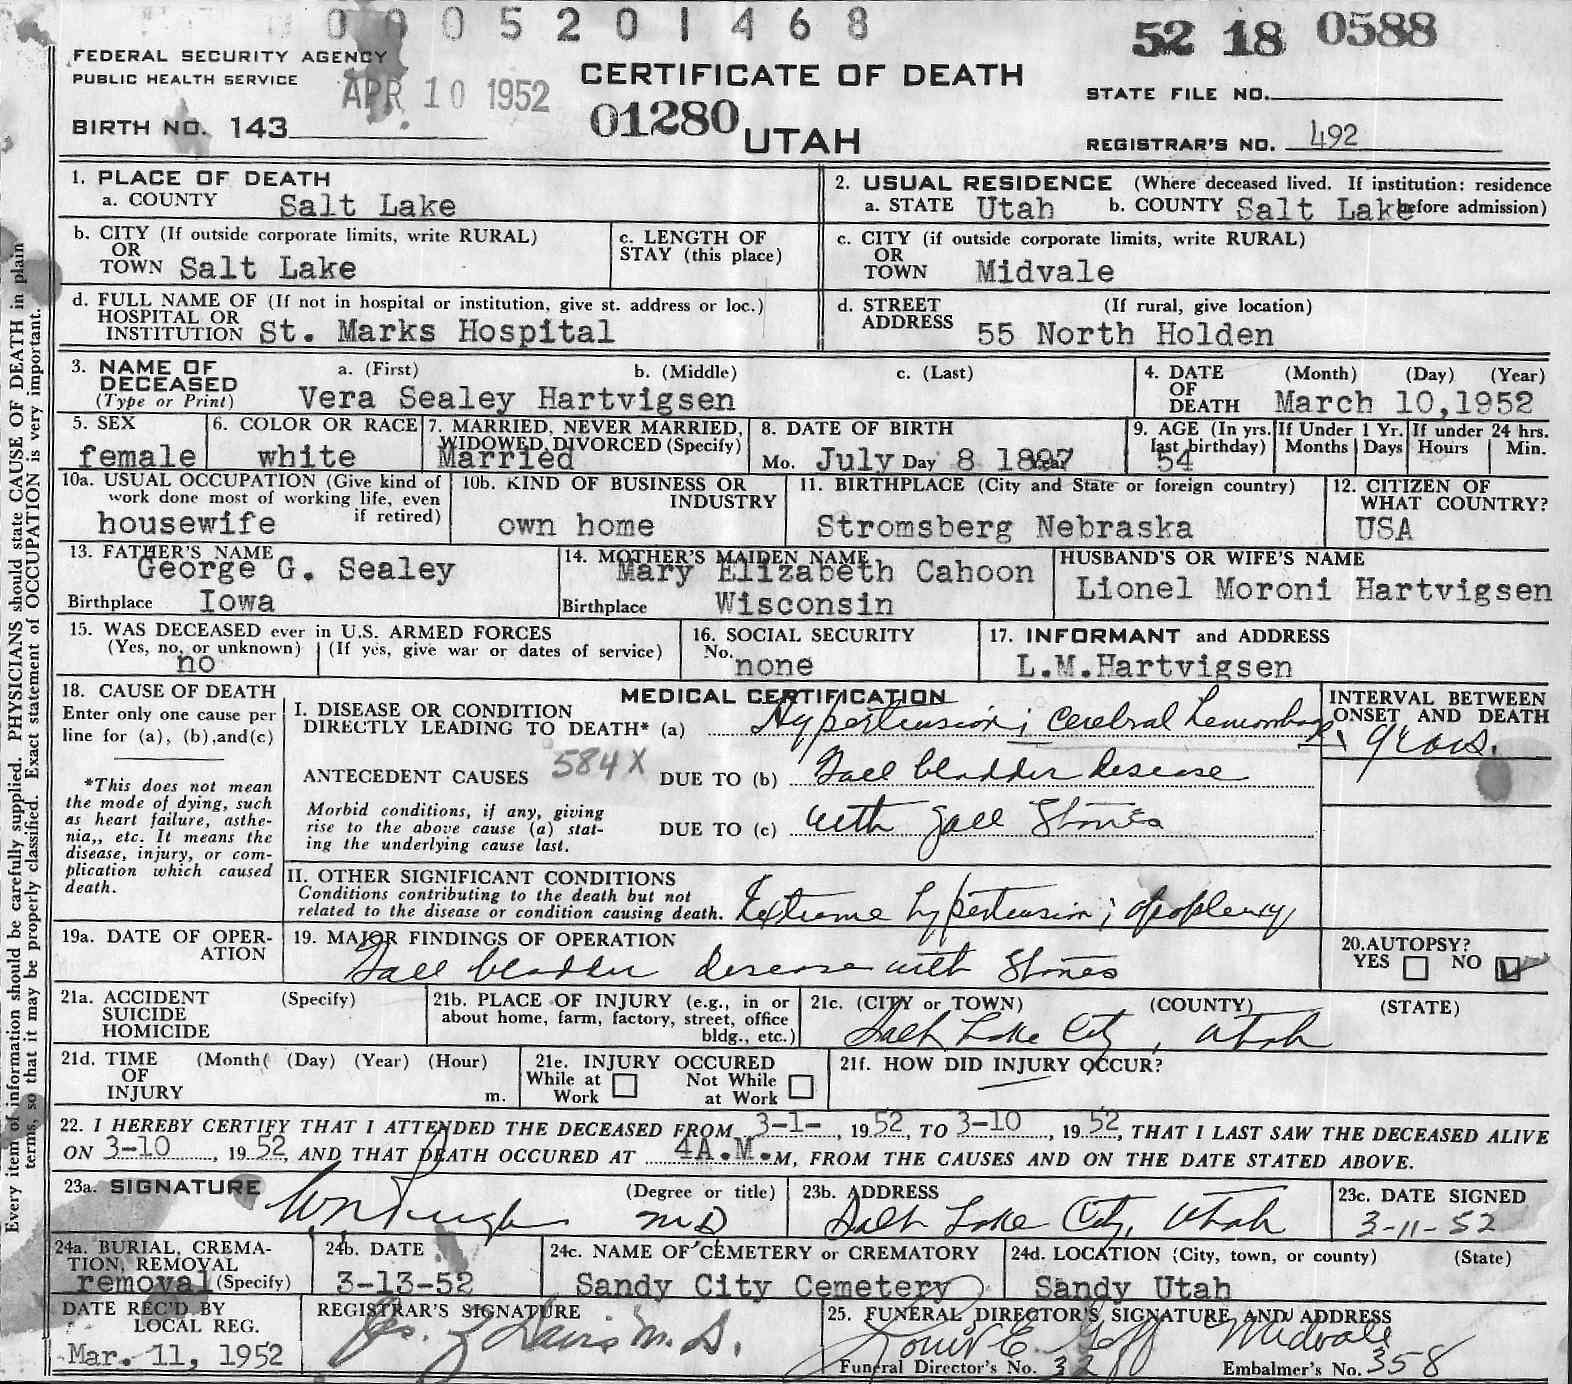 0005201468
52 18 0588
FEDERAL SECURITY AGENCY
PUBLIC HEALTH SERVICE
APR 10 1952
CERTIFICATE OF DEATH
STATE FILE NO.
BIRTH NO. 143
01280
UTAH
REGISTRAR'S NO. 492
Every item of information should be carefully supplied. PHYSICIANS should state CAUSE OF DEATH in plain
terms, so that it may be properly classified. Exact statement of OCCUPATION is very important.
1. PLACE OF DEATH
a. COUNTY Salt Lake
2. USUAL RESIDENCE (Where deceased lived. If institution: residence
a. STATE Utah b. COUNTY Salt Lake before admission)
b. CITY (If outside corporate limits, write RURAL)
OR
TOWN Salt Lake
c. LENGTH OF
STAY (this place)
c. CITY (if outside corporate limits, write RURAL)
OR
TOWN Midvale
d. FULL NAME OF (If not in hospital or institution, give st. address or loc.)
HOSPITAL OR
INSTITUTION St. Marks Hospital
d. STREET (If rural, give location)
ADDRESS 55 North Holden
3. NAME OF
DECEASED
(Type or Print)
a. (First) b. (Middle) c. (Last)
Vera Sealey Hartvigsen
4. DATE (Month) (Day) (Year)
OF
DEATH March 10,1952
5. SEX
female
6. COLOR OR RACE
white
7. MARRIED, NEVER MARRIED,
WIDOWED, DIVORCED (Specify)
Married
8. DATE OF BIRTH
Mo. July Day 8 1897 Year
9. AGE (In yrs.
last birthday)
54
If Under 1 Yr.
Months Days
If under 24 hrs.
Hours Min.
10a. USUAL OCCUPATION (Give kind of
work done most of working life, even
if retired)
housewife
10b. KIND OF BUSINESS OR
INDUSTRY
own home
11. BIRTHPLACE (City and State or foreign country)
Stromsberg Nebraska
12. CITIZEN OF
WHAT COUNTRY?
USA
13. FATHER'S NAME
George G. Sealey
Birthplace Iowa
14. MOTHER'S MAIDEN NAME
Mary Elizabeth Cahoon
Birthplace Wisconsin
HUSBAND'S OR WIFE'S NAME
Lionel Moroni Hartvigsen
15. WAS DECEASED ever in U.S. ARMED FORCES
(Yes, no, or unknown) (If yes, give war or dates of service)
no
16. SOCIAL SECURITY
No. none
17. INFORMANT and ADDRESS
L.M.Hartvigsen
18. CAUSE OF DEATH
Enter only one cause per
line for (a), (b),and(c)
*This does not mean
the mode of dying, such
as heart failure, asthe-
nia,, etc. It means the
disease, injury, or com-
plication which caused
death.
MEDICAL CERTIFICATION
I. DISEASE OR CONDITION
DIRECTLY LEADING TO DEATH* (a) Hypertension; cerebral hemorrhage
ANTECEDENT CAUSES 584X DUE TO (b) Gall bladder disease
Morbid conditions, if any, giving
rise to the above cause (a) stat-
ing the underlying cause last.
DUE TO (c) with gall stones
INTERVAL BETWEEN
ONSET AND DEATH
years.
II. OTHER SIGNIFICANT CONDITIONS
Conditions contributing to the death but not
related to the disease or condition causing death. Extreme hypertension; apoplexy
19a. DATE OF OPER-
ATION
19. MAJOR FINDINGS OF OPERATION
Gall bladder disease with stones
20.AUTOPSY?
YES NO
21a. ACCIDENT (Specify)
SUICIDE
HOMICIDE
21b. PLACE OF INJURY (e.g., in or
about home, farm, factory, street, office
bldg., etc.)
21c. (CITY or TOWN) (COUNTY) (STATE)
Salt Lake City, Utah
21d. TIME (Month( (Day) (Year) (Hour)
OF
INJURY m.
21e. INJURY OCCURED
While at Not While
Work at Work
21f. HOW DID INJURY OCCUR?
22. I HEREBY CERTIFY THAT I ATTENDED THE DECEASED FROM 3-1-, 19 52, TO 3-10, 19 52, THAT I LAST SAW THE DECEASED ALIVE
ON 3-10, 19 52, AND THAT DEATH OCCURED AT 4A.M. M, FROM THE CAUSES AND ON THE DATE STATED ABOVE.
23a. SIGNATURE (Degree or title)
MD
23b. ADDRESS
Salt Lake City, Utah
23c. DATE SIGNED
3-11-52
24a. BURIAL, CREMA-
TION, REMOVAL
removal (Specify)
24b. DATE
3-13-52
24c. NAME OF CEMETERY or CREMATORY
Sandy City Cemetery
24d. LOCATION (City, town, or county) (State)
Sandy Utah
DATE REC'D BY
LOCAL REG.
Mar. 11, 1952
REGISTRAR'S SIGNATURE
Davis M.D.
25. FUNERAL DIRECTOR'S SIGNATURE AND ADDRESS
Louis E. Goff Midvale
Funeral Director's No. 32 Embalmer's No. 358